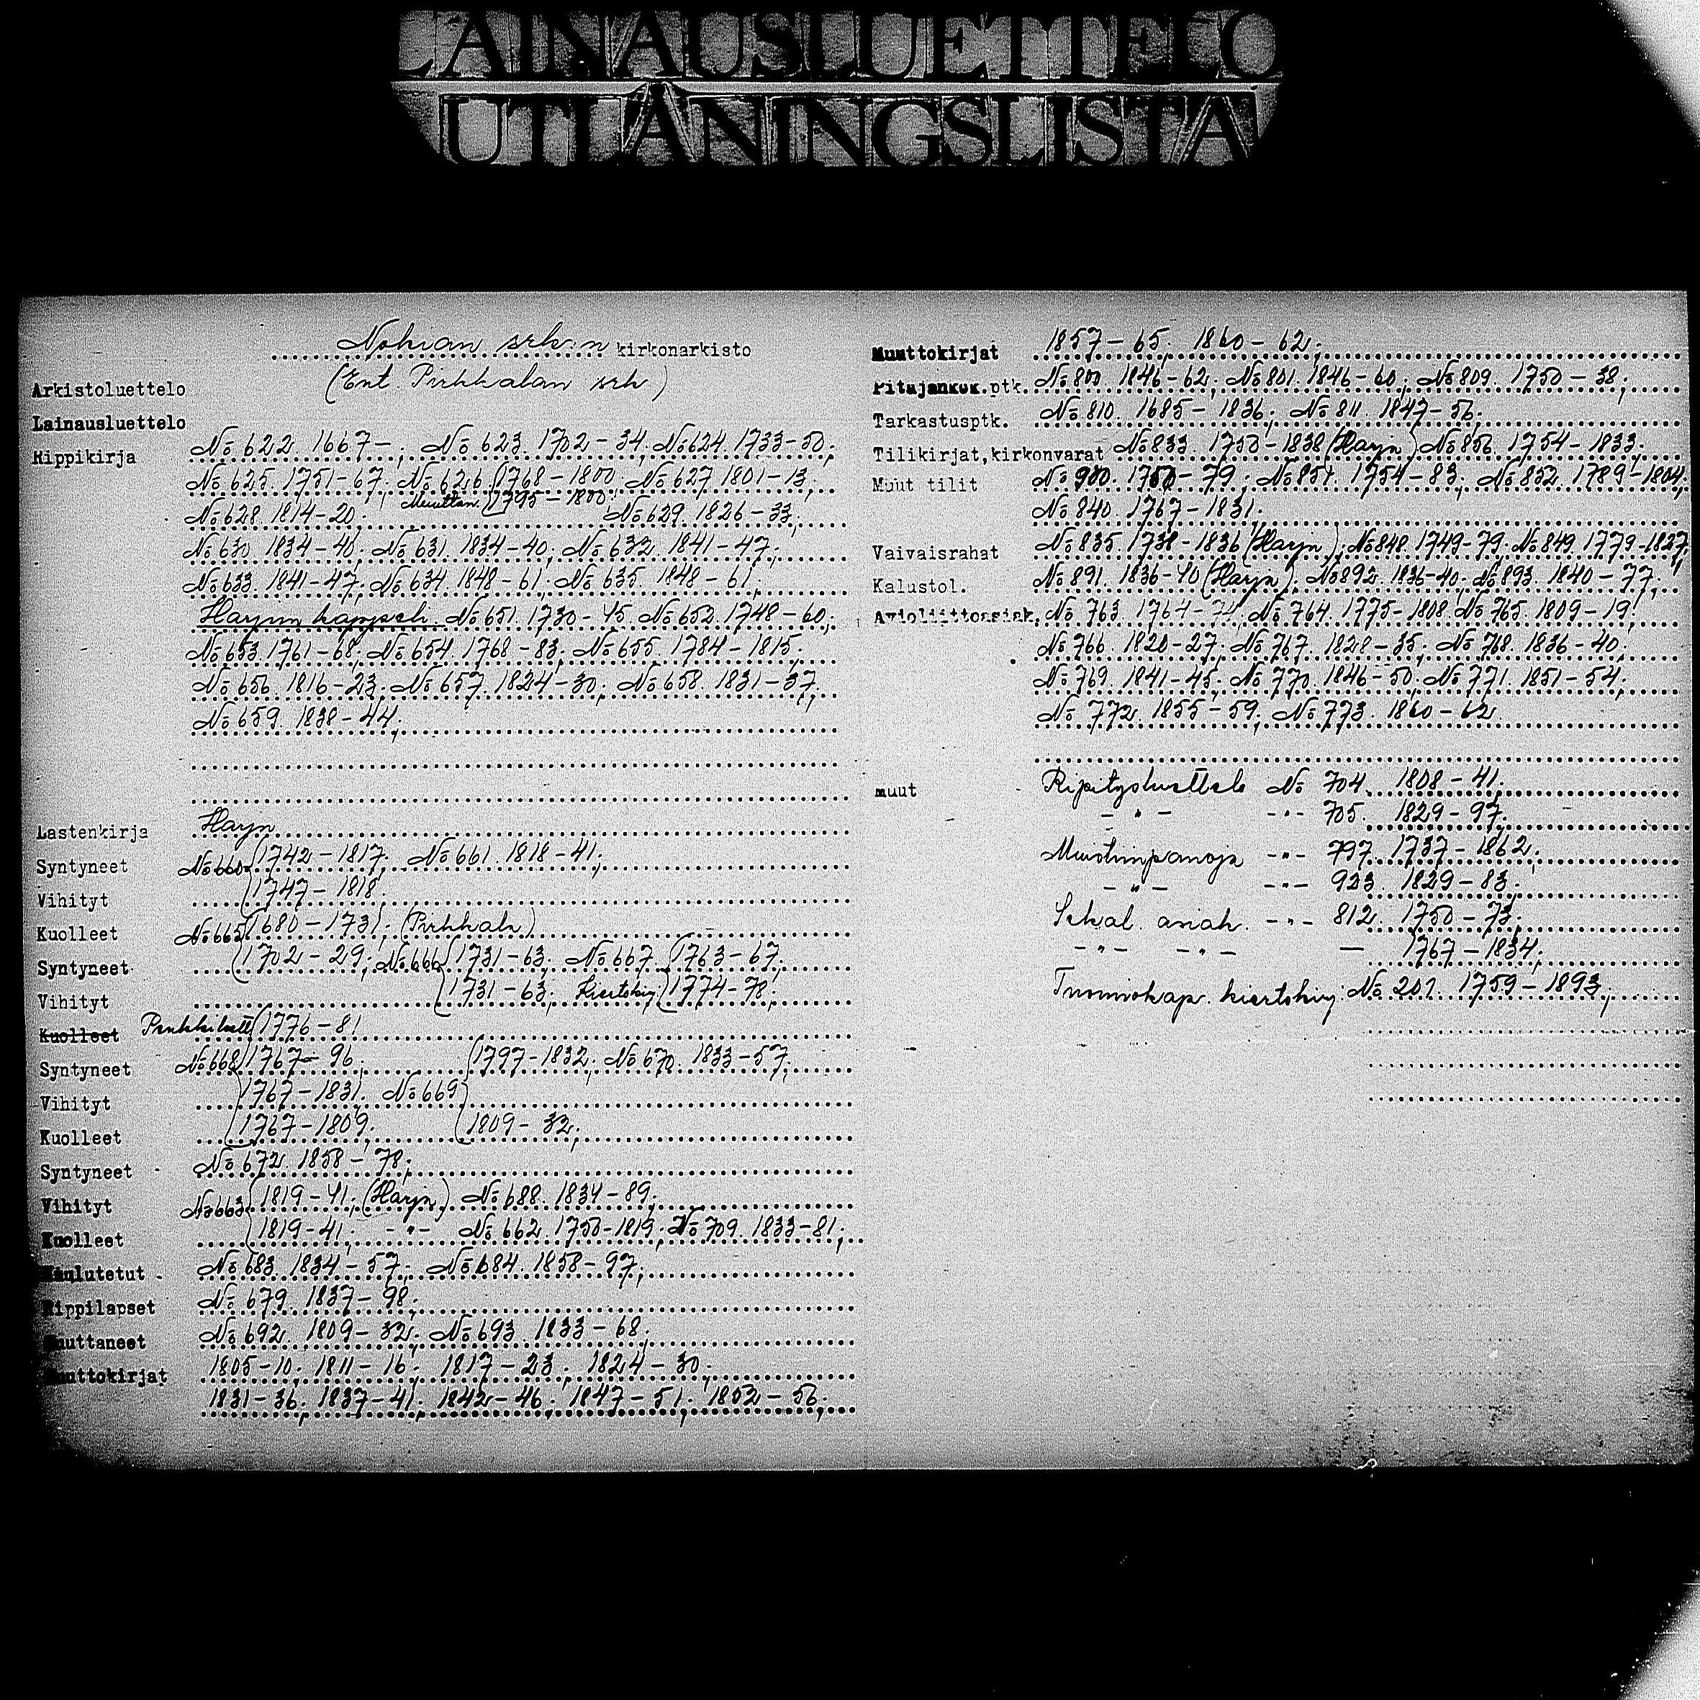 LAINAUSLUETTELO
UTLÅNINGSLISTA
Nokian srk:n kirkonarkisto
Arkistoluettelo (Ent. Pirkkalan srk)
Lainausluettelo
Rippikirja No 622. 1667-; No 623. 1702-34; No 624. 1733-50;
No 625. 1751-67; No 626. 1768-1800; No 627. 1801-13;
Muuttan. 1795-1800;
No 628. 1814-20; No 629. 1826-33;
No 630. 1834-40; No 631. 1834-40; No 632. 1841-47;
No 633. 1841-47; No 634. 1848-61; No 635. 1848-61;
Harjun kappseh. No 651. 1730-45. No 652. 1748-60;
No 653. 1761-68; No 654. 1768-83; No 655. 1784-1815;
No 656. 1816-23; No 657. 1824-30; No 658. 1831-37;
No 659. 1838-44;
Lastenkirja Harju
Syntyneet No 660 1742-1817; No 661. 1818-41;
Vihityt 1747-1818.
Kuolleet No 665 1680-1731. (Pirkkala)
Syntyneet 1702-29; No 666 1731-63; No 667. 1763-67.
Vihityt 1731-63; Kiertokirj. 1774-78;
Kuolleet 1776-81
Syntyneet No 668 1767-96. 1797-1832; No 670. 1833-57;
Vihityt 1767-1831. No 669
Kuolleet 1767-1809. 1809-32;
Syntyneet No 672. 1858-78;
Vihityt No 663 1819-41; (Harju) No 688. 1834-89;
Kuolleet 1819-41; -"- No 662. 1750-1819; No 709. 1833-81;
Kuulutetut No 683. 1834-57; No 684. 1858-97;
Rippilapset No 679. 1837-98;
Muuttaneet No 692. 1809-32; No 693. 1833-68;
Muuttokirjat 1805-10; 1811-16; 1817-23; 1824-30;
1831-36; 1837-41; 1842-46; 1847-51; 1852-56;
Muuttokirjat 1857-65; 1860-62;
Pitäjänkok.ptk. No 800. 1846-62; No 801. 1846-60; No 809. 1750-38;
Tarkastusptk. No 810. 1685-1836; No 811. 1847-56;
Tilikirjat,kirkonvarat No 833. 1750-1838 (Harju) No 856. 1754-1833;
Muut tilit No 900. 1750-79; No 851. 1754-83; No 852. 1789-1804;
No 840. 1767-1831.
Vaivaisrahat No 835. 1738-1836 (Harju); No 848. 1749-79; No 849. 1779-1827;
Kalustol. No 891. 1836-40 (Harju); No 892. 1836-40; No 893. 1840-77;
Avioliittoasiak. No 763. 1764-74; No 764. 1775-1808. No 765. 1809-19;
No 766. 1820-27; No 767. 1828-35; No 768. 1836-40;
No 769. 1841-45; No 770. 1846-50; No 771. 1851-54;
No 772. 1855-59; No 773. 1860-62
muut Ripitysluettelo No 704. 1808-41;
-"- -"- 705. 1829-97;
Muistiinpanoja -"- 797. 1737-1862;
-"- -"- 923. 1829-83;
Sekal. asiak. -"- 812. 1750-73;
-"- -"- — 1767-1834;
Tuomiokap. kiertokirj. No 201. 1759-1893;